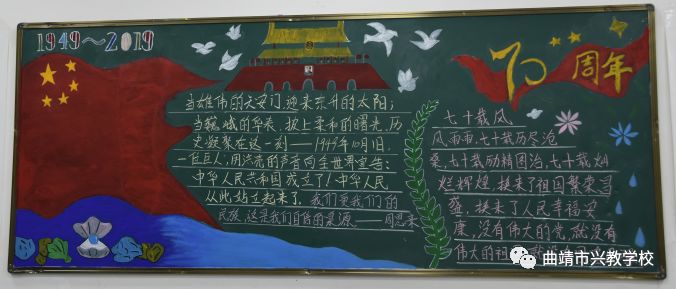 1949～2019
70周年
当雄伟的天安门,迎来东升的太阳;
当巍峨的华表,披上柔和的曙光,历
史凝聚在这一刻——1949年10月1日,
一位巨人,用洪亮的声音向全世界宣告:
中华人民共和国成立了!中华人民
从此站立起来了,我们爱我们的
民族,这是我们自信的泉源——周恩来
七十载风
风雨雨,七十载历尽沧
桑,七十载励精图治,七十载灿
烂辉煌,换来了祖国繁荣昌
盛,换来了人民幸福安
康,没有伟大的党,就没有
伟大的祖
曲靖市兴教学校